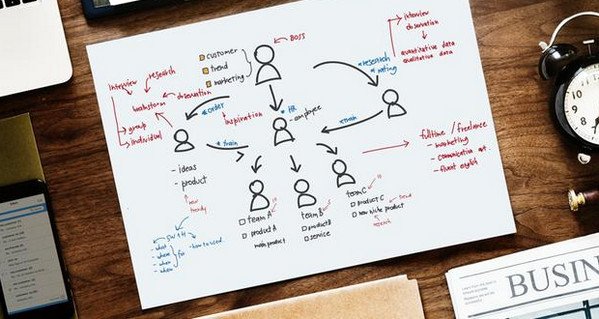 BOSS
customer
trend
marketing
interview
observation
quantitative data
qualitative data
*research
*rating
interview
research
observation
brainstorm
group
individual
*order
inspiration
*HR
- employee
*train
*train
- ideas
- product
new
trendy
fulltime / freelance
- marketing
- communication
- fluent english
team A
product A
main product
team B
product B
service
team C
product C
new niche product
trend
research
5W1H
- how to used.
for
BUSIN